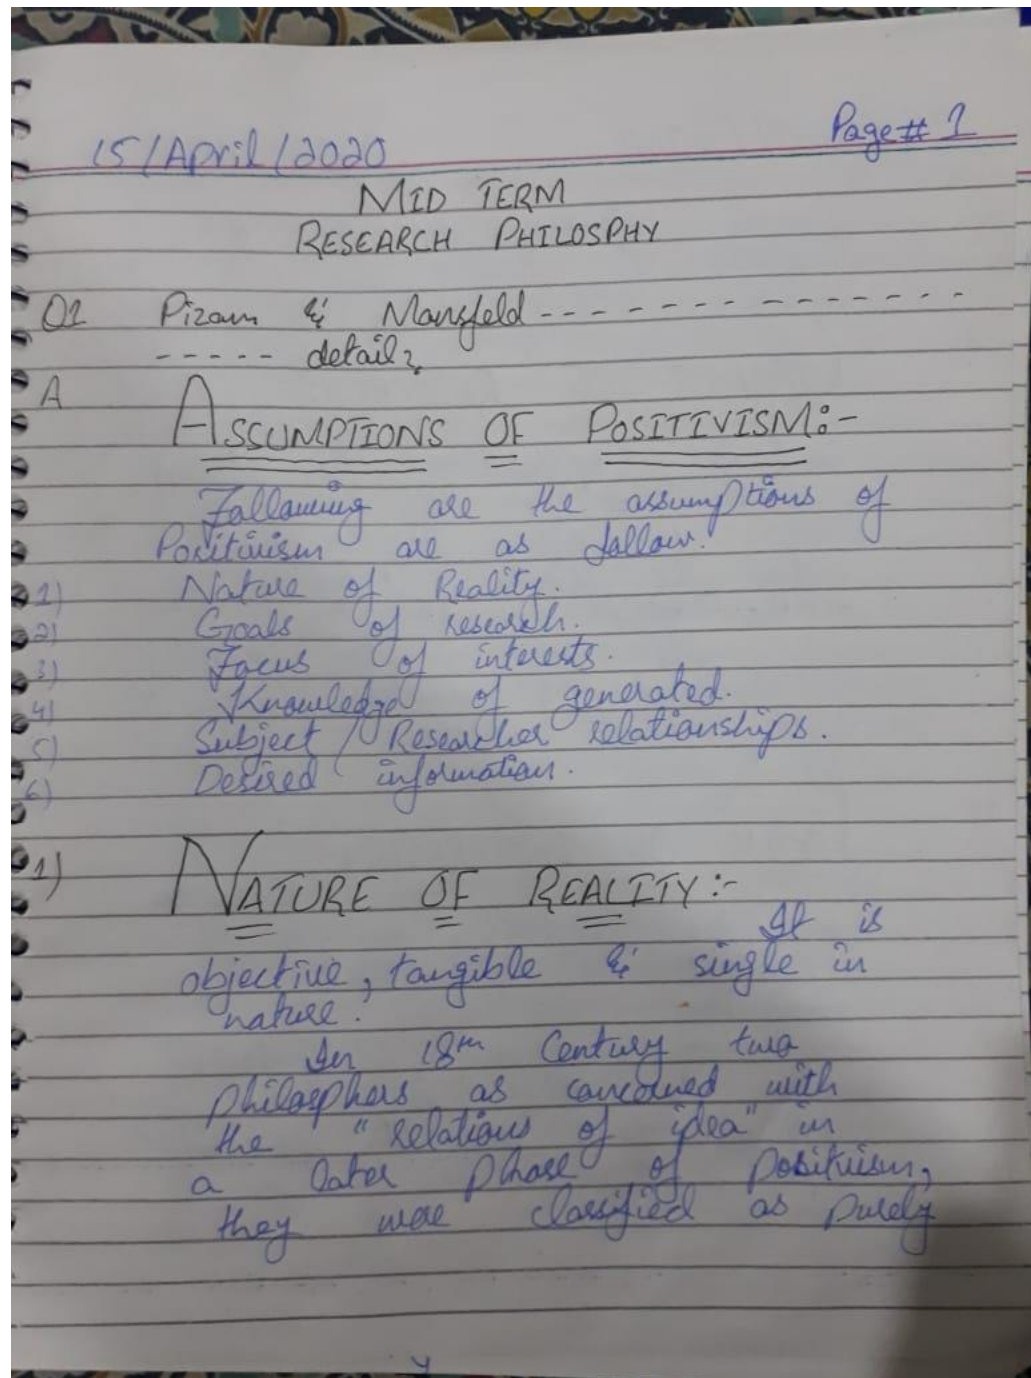 15/April/2020
Page# 1
MID TERM
RESEARCH PHILOSPHY
Q1 Pizam & Mansfeld --------------
----- detail?
A
ASSUMPTIONS OF POSITIVISM:-
Following are the assumptions of
Positivism are as follow.
1) Nature of Reality.
2) Goals of research.
3) Focus of interests.
4) Knowledge of generated.
5) Subject / Researcher relationships.
6) Desired information.
1) NATURE OF REALITY:-
It is
objective, tangible & single in
nature.
In 18th Century two
philosphers as concerned with
the "relations of idea" in
a later phase of positivism,
they were classified as purely